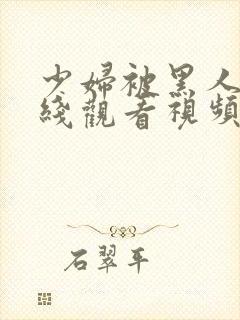 少婦被黑人
綫觀看視頻
石翠平